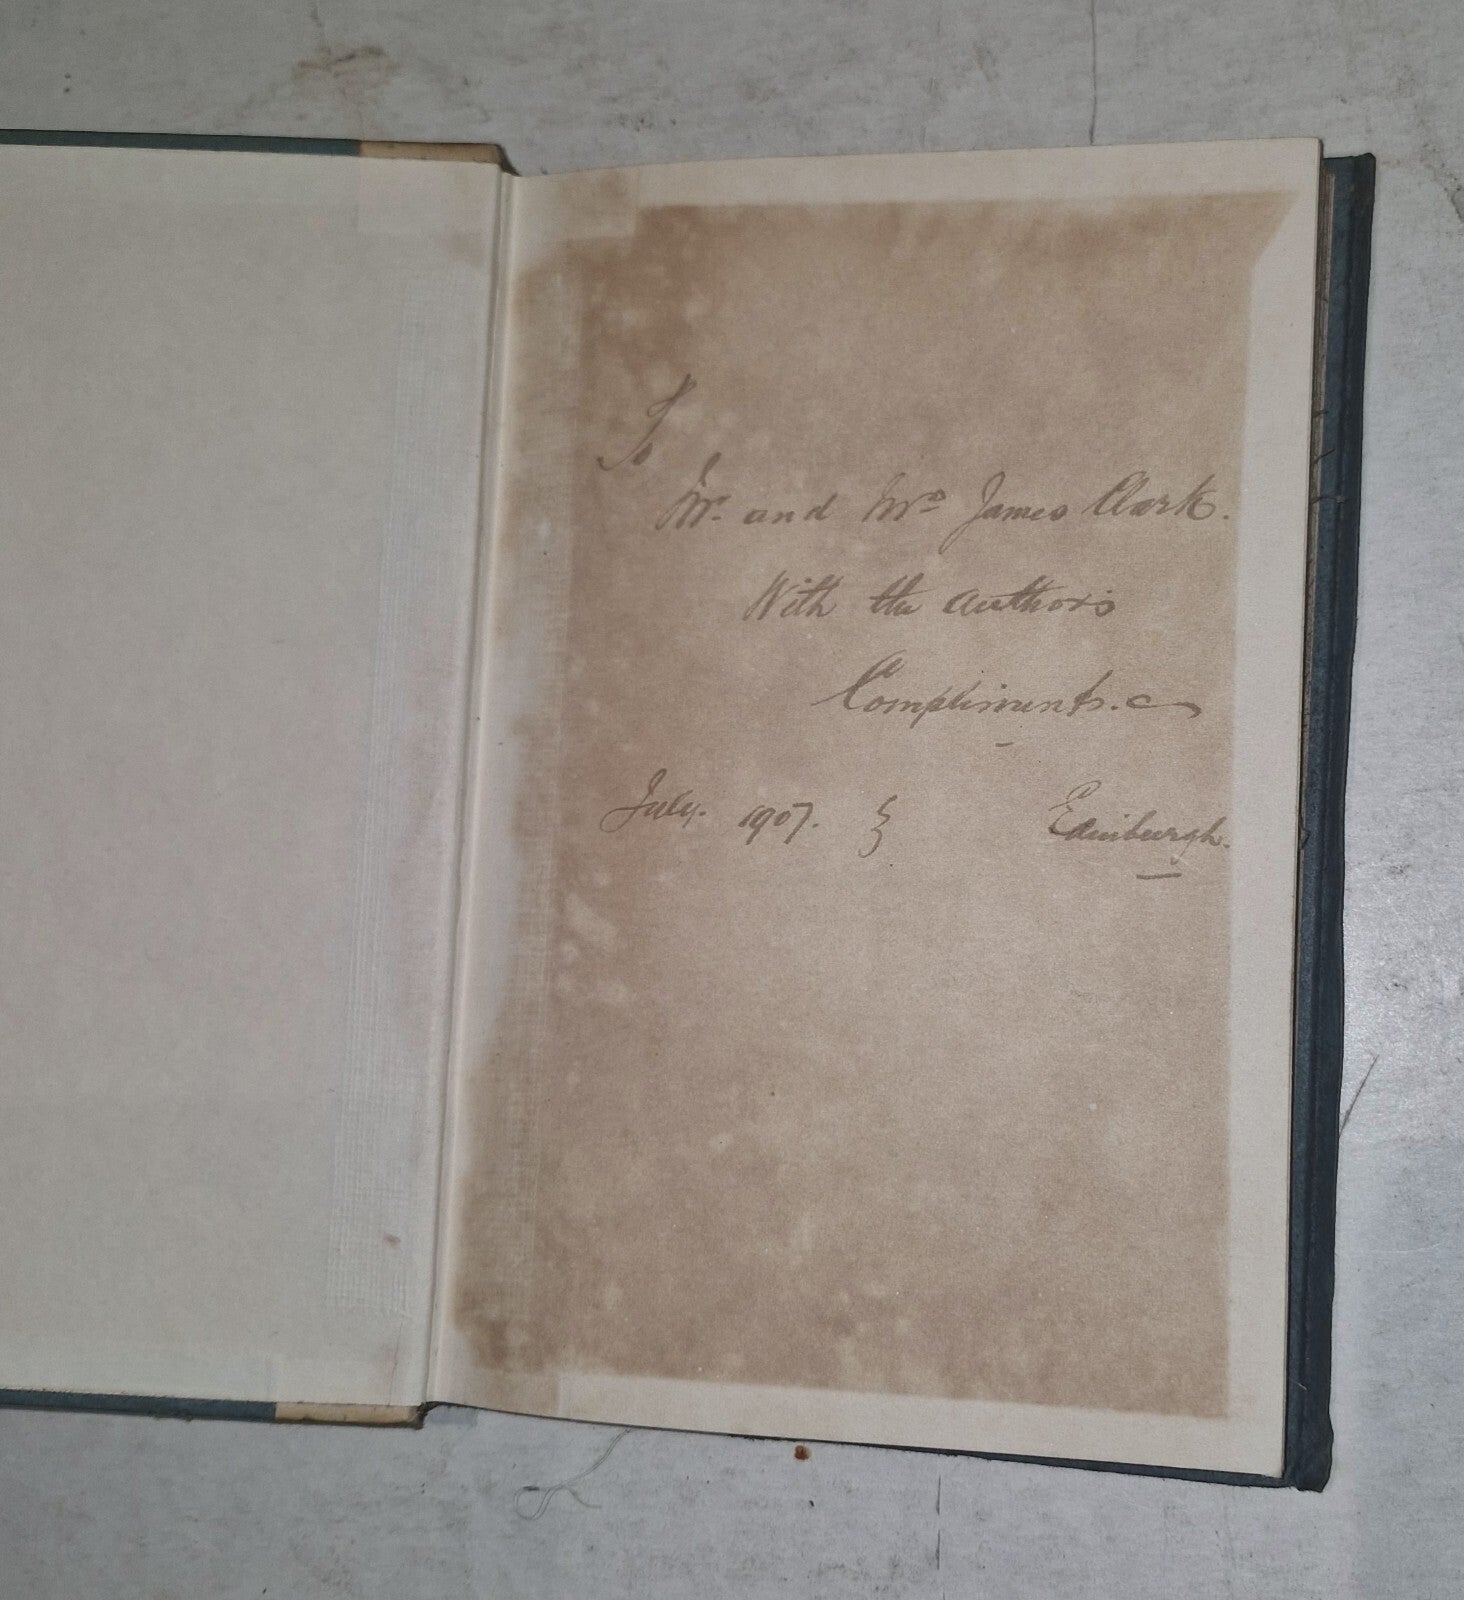 To
Mr. and Mrs James Clark.
With the authors
Compliments.
July. 1907. } Edinburgh.